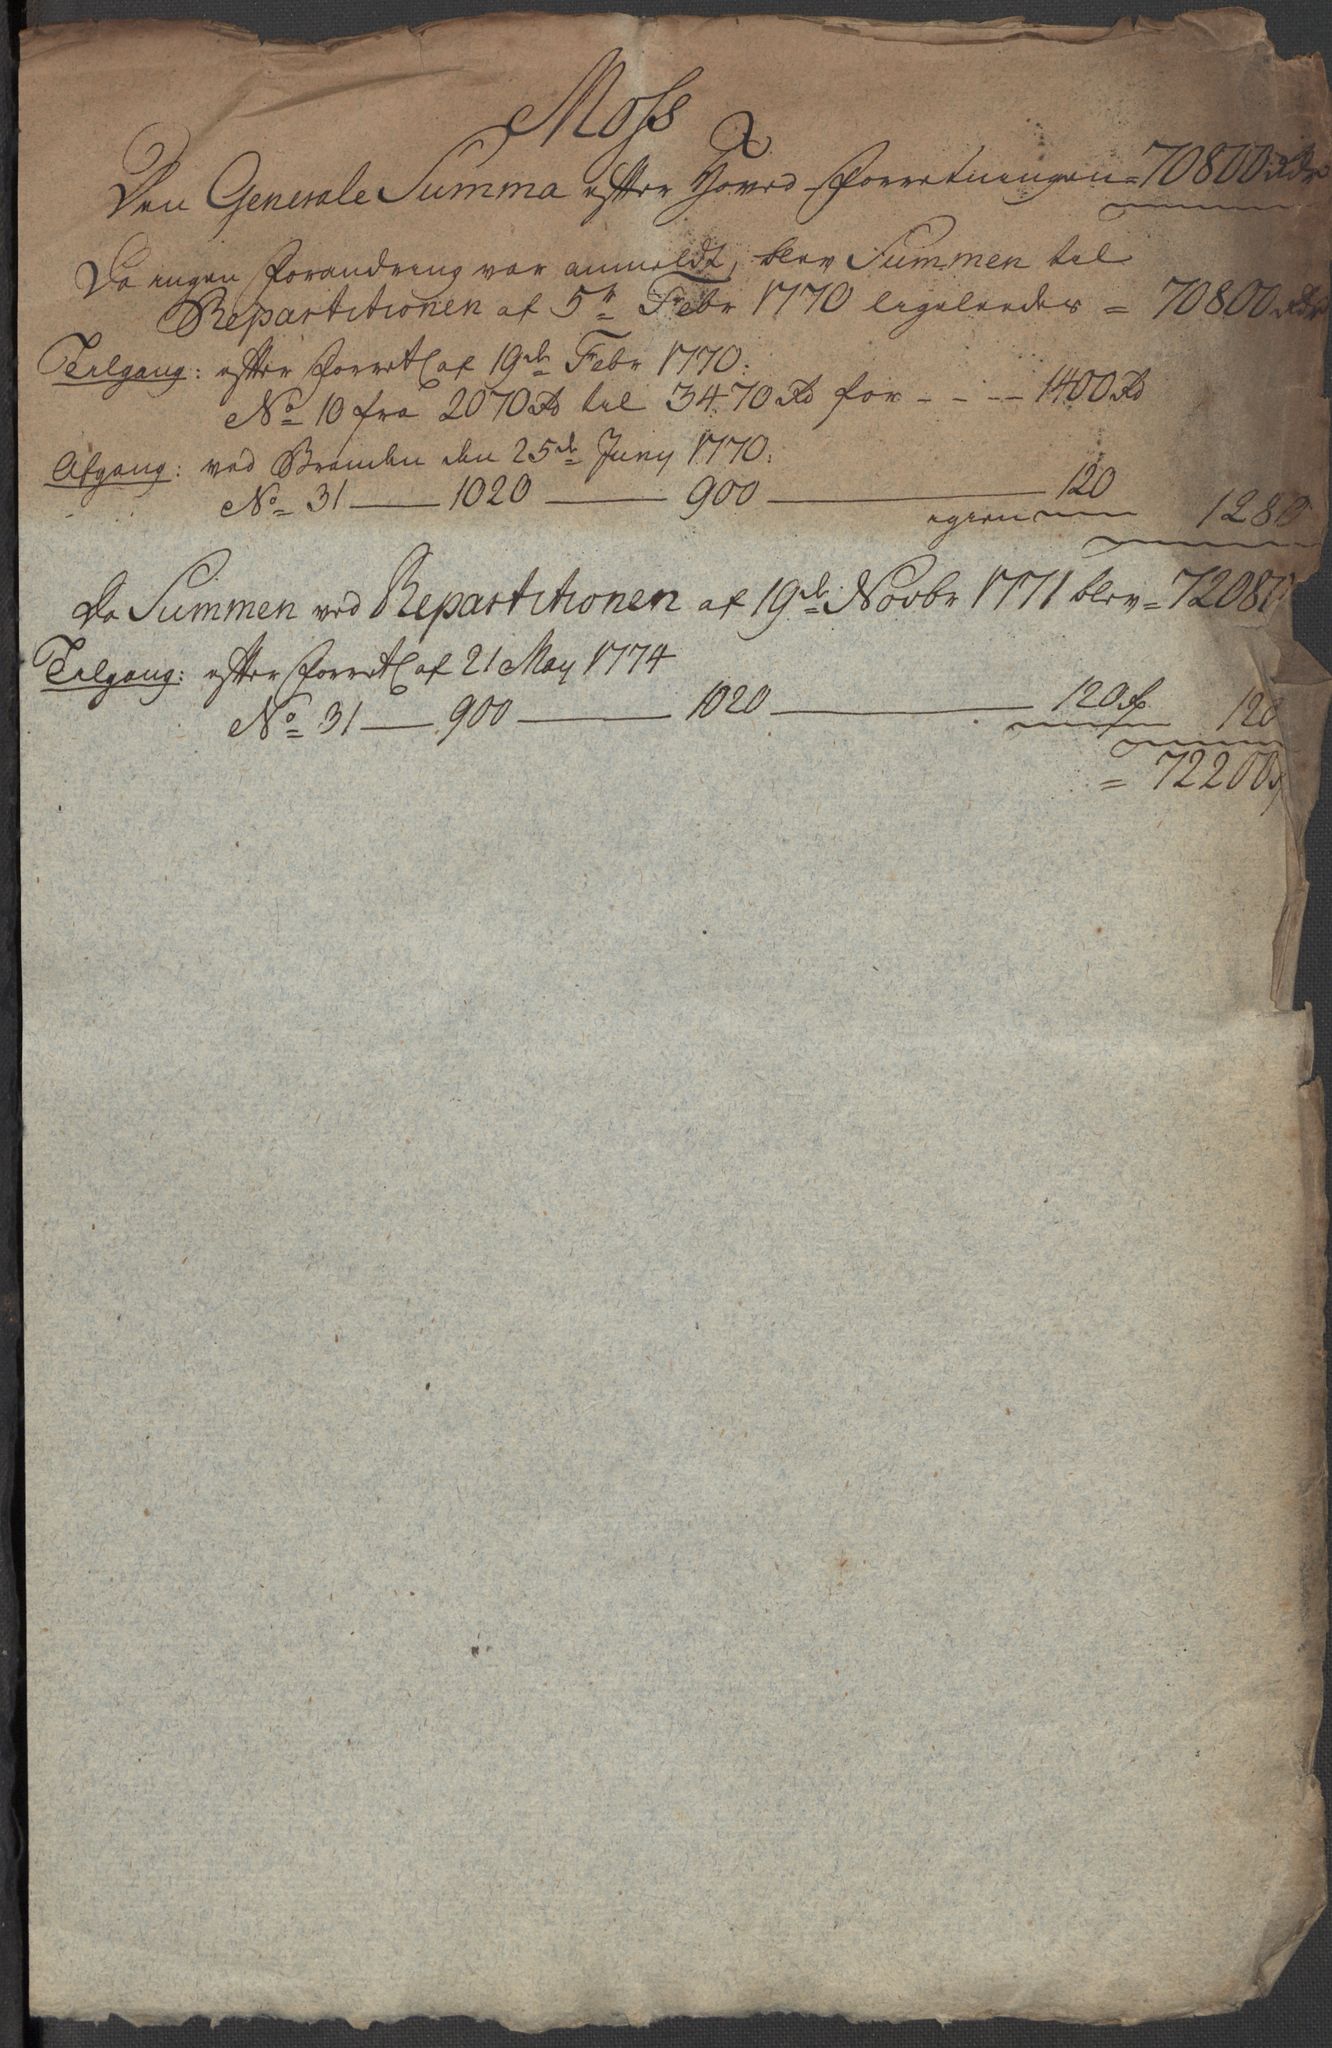 Moss
Den Generale Summa efter Hoved-Forretningen = 70800 Rdr
Da ingen Forandring var anmeldt, blev Summen til
Repartitionen af 5te Febr 1770 ligeledes = 70800 Rdr
Tilgang: efter Forretn af 19de Febr 1770:
No 10 fra 2070 Rd til 3470 Rd for - - - - 1400 Rd
Afgang: ved Branden den 25de Juny 1770:
No 31 — 1020 — 900 — 120
igien 1280
Da Summen ved Repartitionen af 19de Novbr 1771 blev = 72080
Tilgang: efter Forretn af 21 May 1774
No 31 — 900 — 1020 — 120 120
= 72200